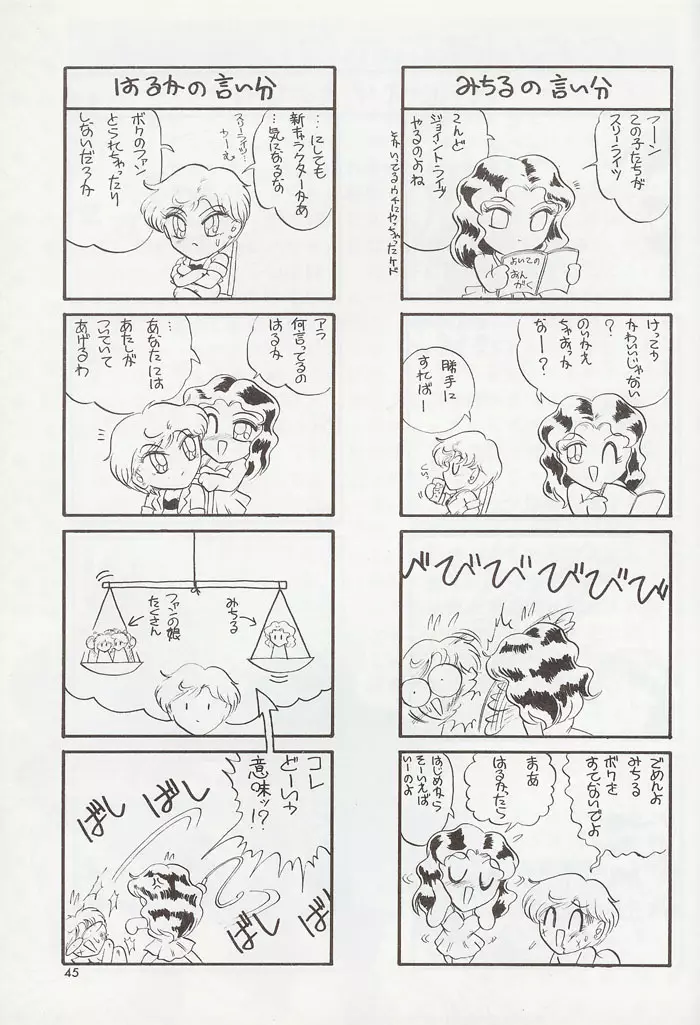 みちるの言い分
フーン
この子たちが
スリーライツ
こんど
ジョイントライブ
やるのよね
よいこの
おん
がく
けっこー
かわいいじゃない
？
のりかえ
ちゃおっか
なー？
勝手に
すればー
びびびびびび
ごめんよ
みちる
ボクを
すてないでよ
まあ
はるかったら
はじめから
そーいえば
いーのよ
はるかの言い分
…にしても
新キャラクターかぁ
…気になるな
スリーライツ…
むーーむ
ボクのファン
とられちゃったり
しないだろーか
アラ
何言ってるの
はるか
…
あなたには
あたしが
ついていて
あげるわ
みちる
ファンの娘
たくさん
コレ
どーいゃ
意味ッ!?
ばし
ばし
ばし
ばし
45